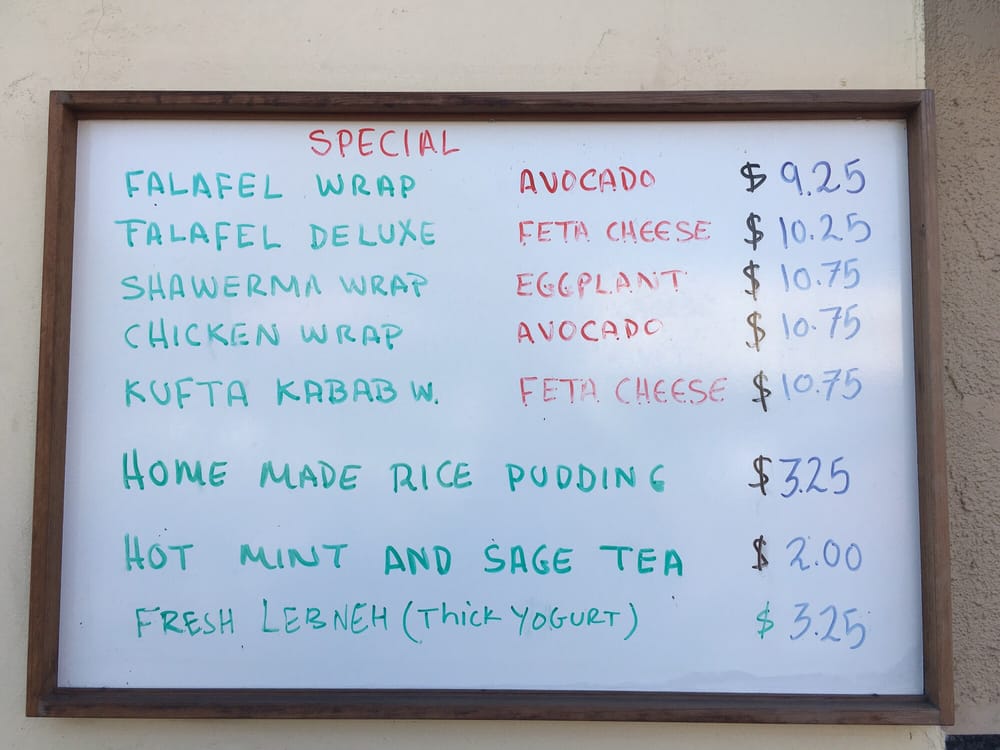 SPECIAL
FALAFEL WRAP AVOCADO $ 9.25
FALAFEL DELUXE FETA CHEESE $ 10.25
SHAWERMA WRAP EGGPLANT $ 10.75
CHICKEN WRAP AVOCADO $ 10.75
KUFTA KABAB W. FETA CHEESE $ 10.75
HOME MADE RICE PUDDING $ 3.25
HOT MINT AND SAGE TEA $ 2.00
FRESH LEBNEH (Thick YOGURT) $ 3.25